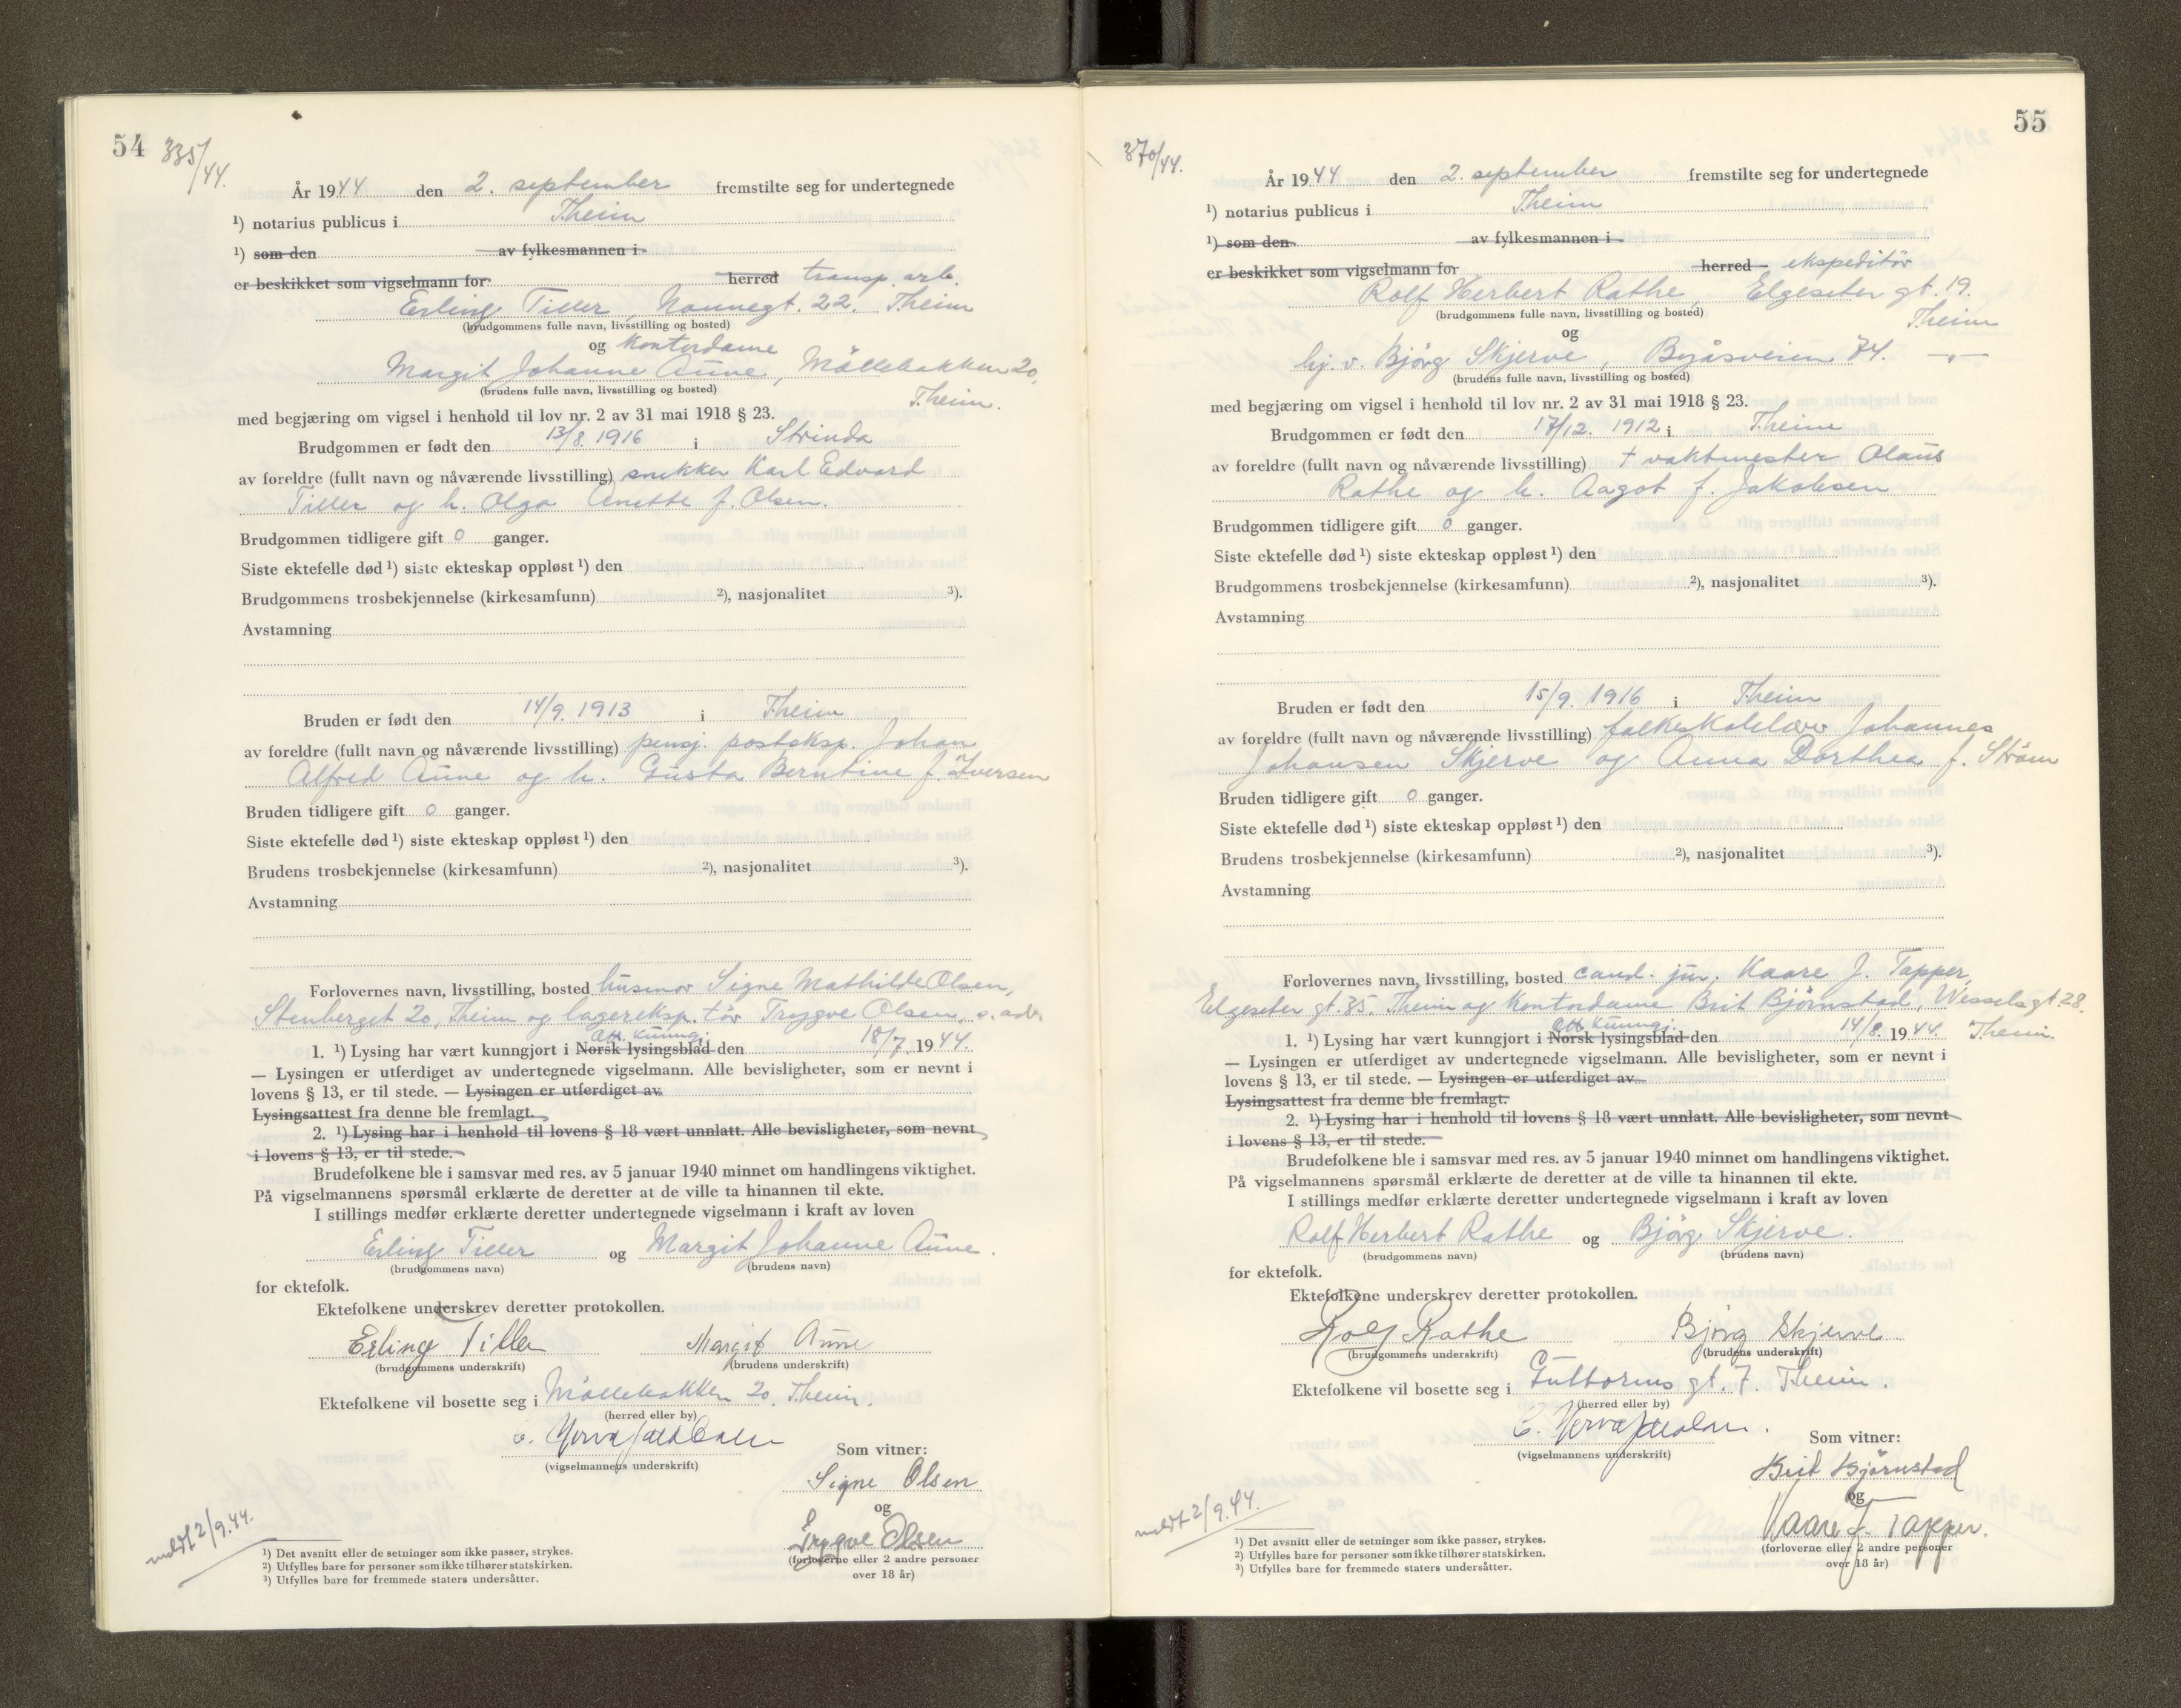 54 335/44.
År 1944 den 2. september fremstilte seg for undertegnede
¹) notarius publicus i T.heim
¹) som den av fylkesmannen i
er beskikket som vigselmann for herred transp. arb.
Erling Tiller, Nonnegt. 22. T.heim
(brudgommens fulle navn, livsstilling og bosted)
og Kontordame
Margit Johanne Aune, Möllebakken 20,
(brudens fulle navn, livsstilling og bosted) T.heim.
med begjæring om vigsel i henhold til lov nr. 2 av 31 mai 1918 § 23.
Brudgommen er født den 13/8. 1916 i Strinda
av foreldre (fullt navn og nåværende livsstilling) snekker Karl Edvard
Tiller og h. Olga Anette f. Olsen.
Brudgommen tidligere gift 0 ganger.
Siste ektefelle død ¹) siste ekteskap oppløst ¹) den
Brudgommens trosbekjennelse (kirkesamfunn) ²), nasjonalitet ³).
Avstamning
Bruden er født den 14/9. 1913 i T.heim
av foreldre (fullt navn og nåværende livsstilling) pensj. posteksp. Johan
Alfred Aune og h. Gusta Berntine f. Iversen
Bruden tidligere gift 0 ganger.
Siste ektefelle død ¹) siste ekteskap oppløst ¹) den
Brudens trosbekjennelse (kirkesamfunn) ²), nasjonalitet ³).
Avstamning
Forlovernes navn, livsstilling, bosted husmor Signe Mathilde Olsen,
Stenberget 20, T.heim og lagereksp.tör Trygve Olsen. s. adr.
Off. Kunngj.
1. ¹) Lysing har vært kunngjort i Norsk lysingsblad den 18/7. 1944.
— Lysingen er utferdiget av undertegnede vigselmann. Alle bevisligheter, som er nevnt i
lovens § 13, er til stede. — Lysingen er utferdiget av
Lysingsattest fra denne ble fremlagt.
2. ¹) Lysing har i henhold til lovens § 18 vært unnlatt. Alle bevisligheter, som nevnt
i lovens § 13, er til stede.
Brudefolkene ble i samsvar med res. av 5 januar 1940 minnet om handlingens viktighet.
På vigselmannens spørsmål erklærte de deretter at de ville ta hinannen til ekte.
I stillings medfør erklærte deretter undertegnede vigselmann i kraft av loven
Erling Tiller og Margit Johanne Aune.
(brudgommens navn) (brudens navn)
for ektefolk.
Ektefolkene underskrev deretter protokollen.
Erling Tiller Margit Aune
(brudgommens underskrift) (brudens underskrift)
Ektefolkene vil bosette seg i Möllebakken 20. T.heim.
(herred eller by)
(vigselmannens underskrift)
Som vitner:
Signe Olsen
og
Trygve Olsen
(forloverne eller 2 andre personer
over 18 år)
meldt 2/9.44.
¹) Det avsnitt eller de setninger som ikke passer, strykes.
²) Utfylles bare for personer som ikke tilhører statskirken.
³) Utfylles bare for fremmede staters undersåtter.
55
370/44.
År 1944 den 2. september fremstilte seg for undertegnede
¹) notarius publicus i T.heim
¹) som den av fylkesmannen i
er beskikket som vigselmann for herred ekspeditör
Rolf Herbert Rathe, Elgeseter gt. 19.
(brudgommens fulle navn, livsstilling og bosted) T.heim
og
hj. v. Björg Skjerve, Byåsveien 74. —„—
(brudens fulle navn, livsstilling og bosted)
med begjæring om vigsel i henhold til lov nr. 2 av 31 mai 1918 § 23.
Brudgommen er født den 17/12. 1912 i T.heim
av foreldre (fullt navn og nåværende livsstilling) † vaktmester Olaus
Rathe og h. Aagot f. Jakobsen
Brudgommen tidligere gift 0 ganger.
Siste ektefelle død ¹) siste ekteskap oppløst ¹) den
Brudgommens trosbekjennelse (kirkesamfunn) ²), nasjonalitet ³).
Avstamning
Bruden er født den 15/9. 1916 i T.heim
av foreldre (fullt navn og nåværende livsstilling) folkeskolelærer Johannes
Johansen Skjerve og Anna Dorthea f. Ström
Bruden tidligere gift 0 ganger.
Siste ektefelle død ¹) siste ekteskap oppløst ¹) den
Brudens trosbekjennelse (kirkesamfunn) ²), nasjonalitet ³).
Avstamning
Forlovernes navn, livsstilling, bosted cand. jur. Kaare J. Tapper,
Elgeseter gt. 35. T.heim og Kontordame Brit Björnstad, Wesselsgt. 28.
Off. Kunngj.
1. ¹) Lysing har vært kunngjort i Norsk lysingsblad den 14/8. 1944. T.heim.
— Lysingen er utferdiget av undertegnede vigselmann. Alle bevisligheter, som er nevnt i
lovens § 13, er til stede. — Lysingen er utferdiget av
Lysingsattest fra denne ble fremlagt.
2. ¹) Lysing har i henhold til lovens § 18 vært unnlatt. Alle bevisligheter, som nevnt
i lovens § 13, er til stede.
Brudefolkene ble i samsvar med res. av 5 januar 1940 minnet om handlingens viktighet.
På vigselmannens spørsmål erklærte de deretter at de ville ta hinannen til ekte.
I stillings medfør erklærte deretter undertegnede vigselmann i kraft av loven
Rolf Herbert Rathe og Björg Skjerve.
(brudgommens navn) (brudens navn)
for ektefolk.
Ektefolkene underskrev deretter protokollen.
Rolf Rathe Björg Skjerve
(brudgommens underskrift) (brudens underskrift)
Ektefolkene vil bosette seg i Guttorms gt. 7. T.heim.
(herred eller by)
(vigselmannens underskrift)
Som vitner:
Brit Björnstad
og
Kaare J. Tapper.
(forloverne eller 2 andre personer
over 18 år)
meldt 2/9.44.
¹) Det avsnitt eller de setninger som ikke passer, strykes.
²) Utfylles bare for personer som ikke tilhører statskirken.
³) Utfylles bare for fremmede staters undersåtter.